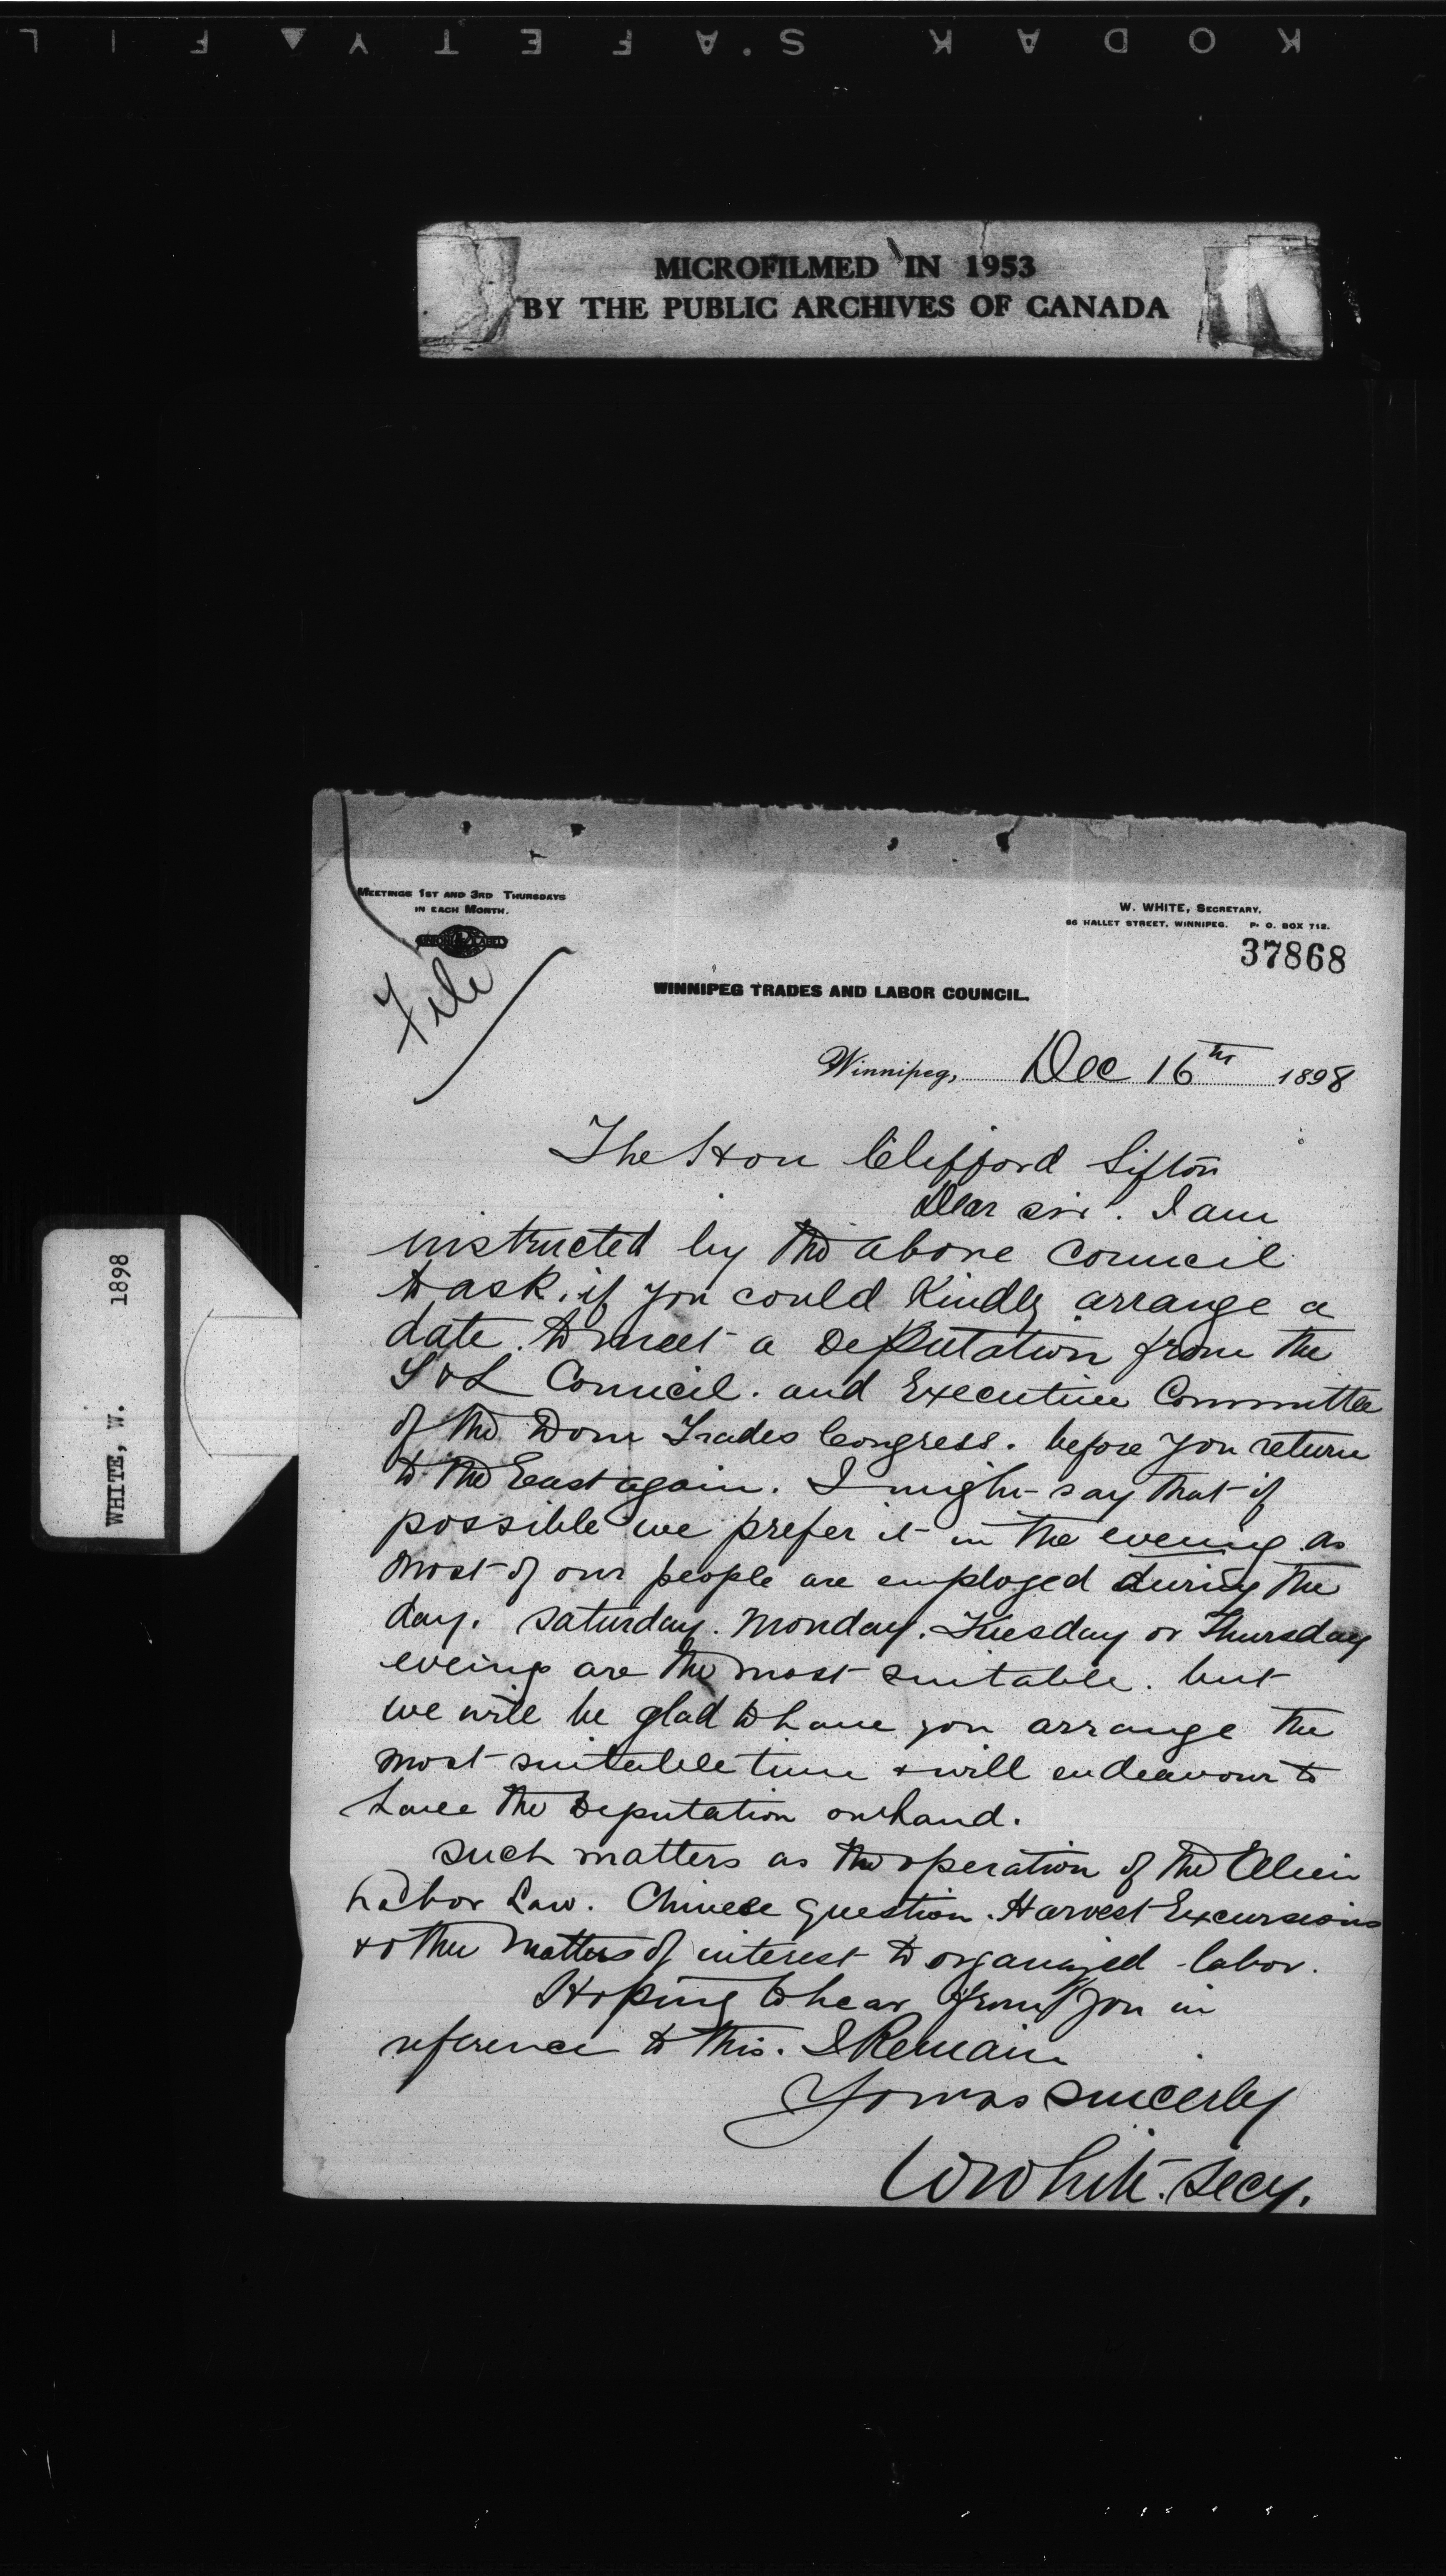 KODAK S.AFETY ▲ FIL
MICROFILMED IN 1953
BY THE PUBLIC ARCHIVES OF CANADA
WHITE, W. 1898
MEETINGS 1ST AND 3RD THURSDAYS
IN EACH MONTH.
W. WHITE, SECRETARY,
HALLET STREET, WINNIPEG. P. O. BOX 712.
37868
File
WINNIPEG TRADES AND LABOR COUNCIL.
Winnipeg, Dec 16th 1898
The Hon Clifford Sifton
Dear sir. I am
instructed by the above Council
to ask. if you could Kindly arrange a
date. to meet a Deputation from the
T & L Council. and Executive Committee
of the Dom Trades Congress. before you return
to the East again. I might say that if
possible we prefer it in the evening as
most of our people are employed during the
day. Saturday. Monday. Tuesday or Thursday
eveing are the most suitable. but
we will be glad to have you arrange the
most suitable time & will endeavour to
have the Deputation on hand.
such matters as the operation of the Alien
Labor Law. Chinese question. Harvest Excursions
& other matters of interest to organized labor.
Hoping to hear from you in
reference to this. I Remain
Yours sincerly
W White. Secy.